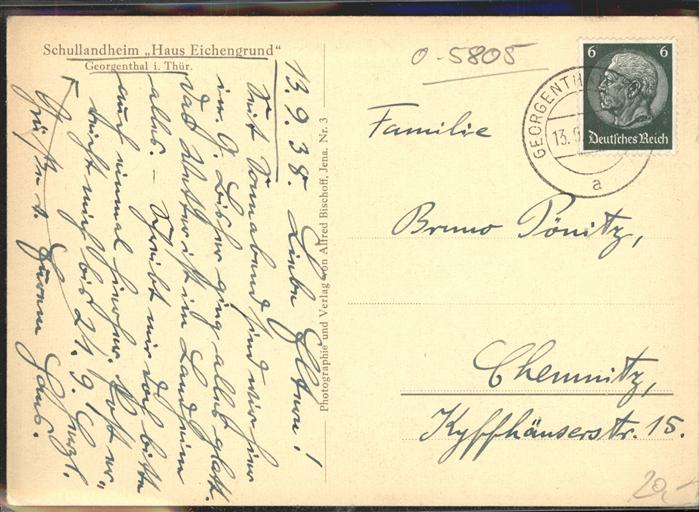 Schullandheim „Haus Eichengrund“
Georgenthal i. Thür.
13. 9. 38. Liebe Eltern!
Seit Sonnabend sind wir hier
im G. Bisher ging alles glatt.
Das Wetter ist im Landheim
alles. – Schreibt mir doch bitte
auch einmal hierher. Post er-
reicht mich bis 21. 9. Herzl.
Grüße v. Eurem Hans.
Photographie und Verlag von Alfred Bischoff, Jena. Nr. 3
0-5805
GEORGENTH
13.9.
a
6 6
Deutsches Reich
Familie
Bruno Pönitz,
Chemnitz,
Kyffhäuserstr. 15.
20,-